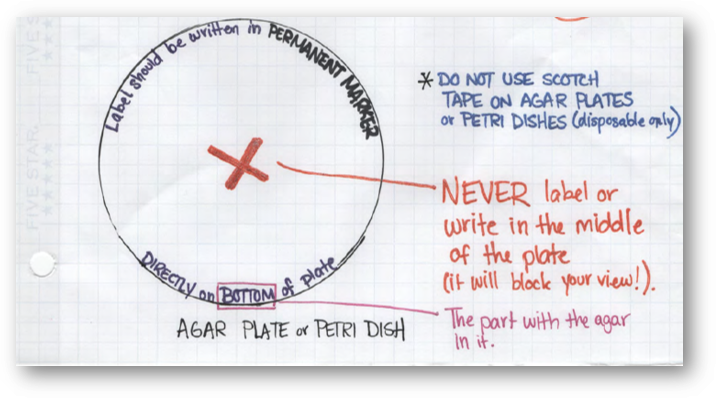 Label should be written in PERMANENT MARKER
DIRECTLY on BOTTOM of plate
AGAR PLATE or PETRI DISH
* DO NOT USE SCOTCH
TAPE ON AGAR PLATES
or PETRI DISHES (disposable only)
NEVER label or
write in the middle
of the plate
(it will block your view!).
The part with the agar
in it.
FIVE STAR.
FIVE S